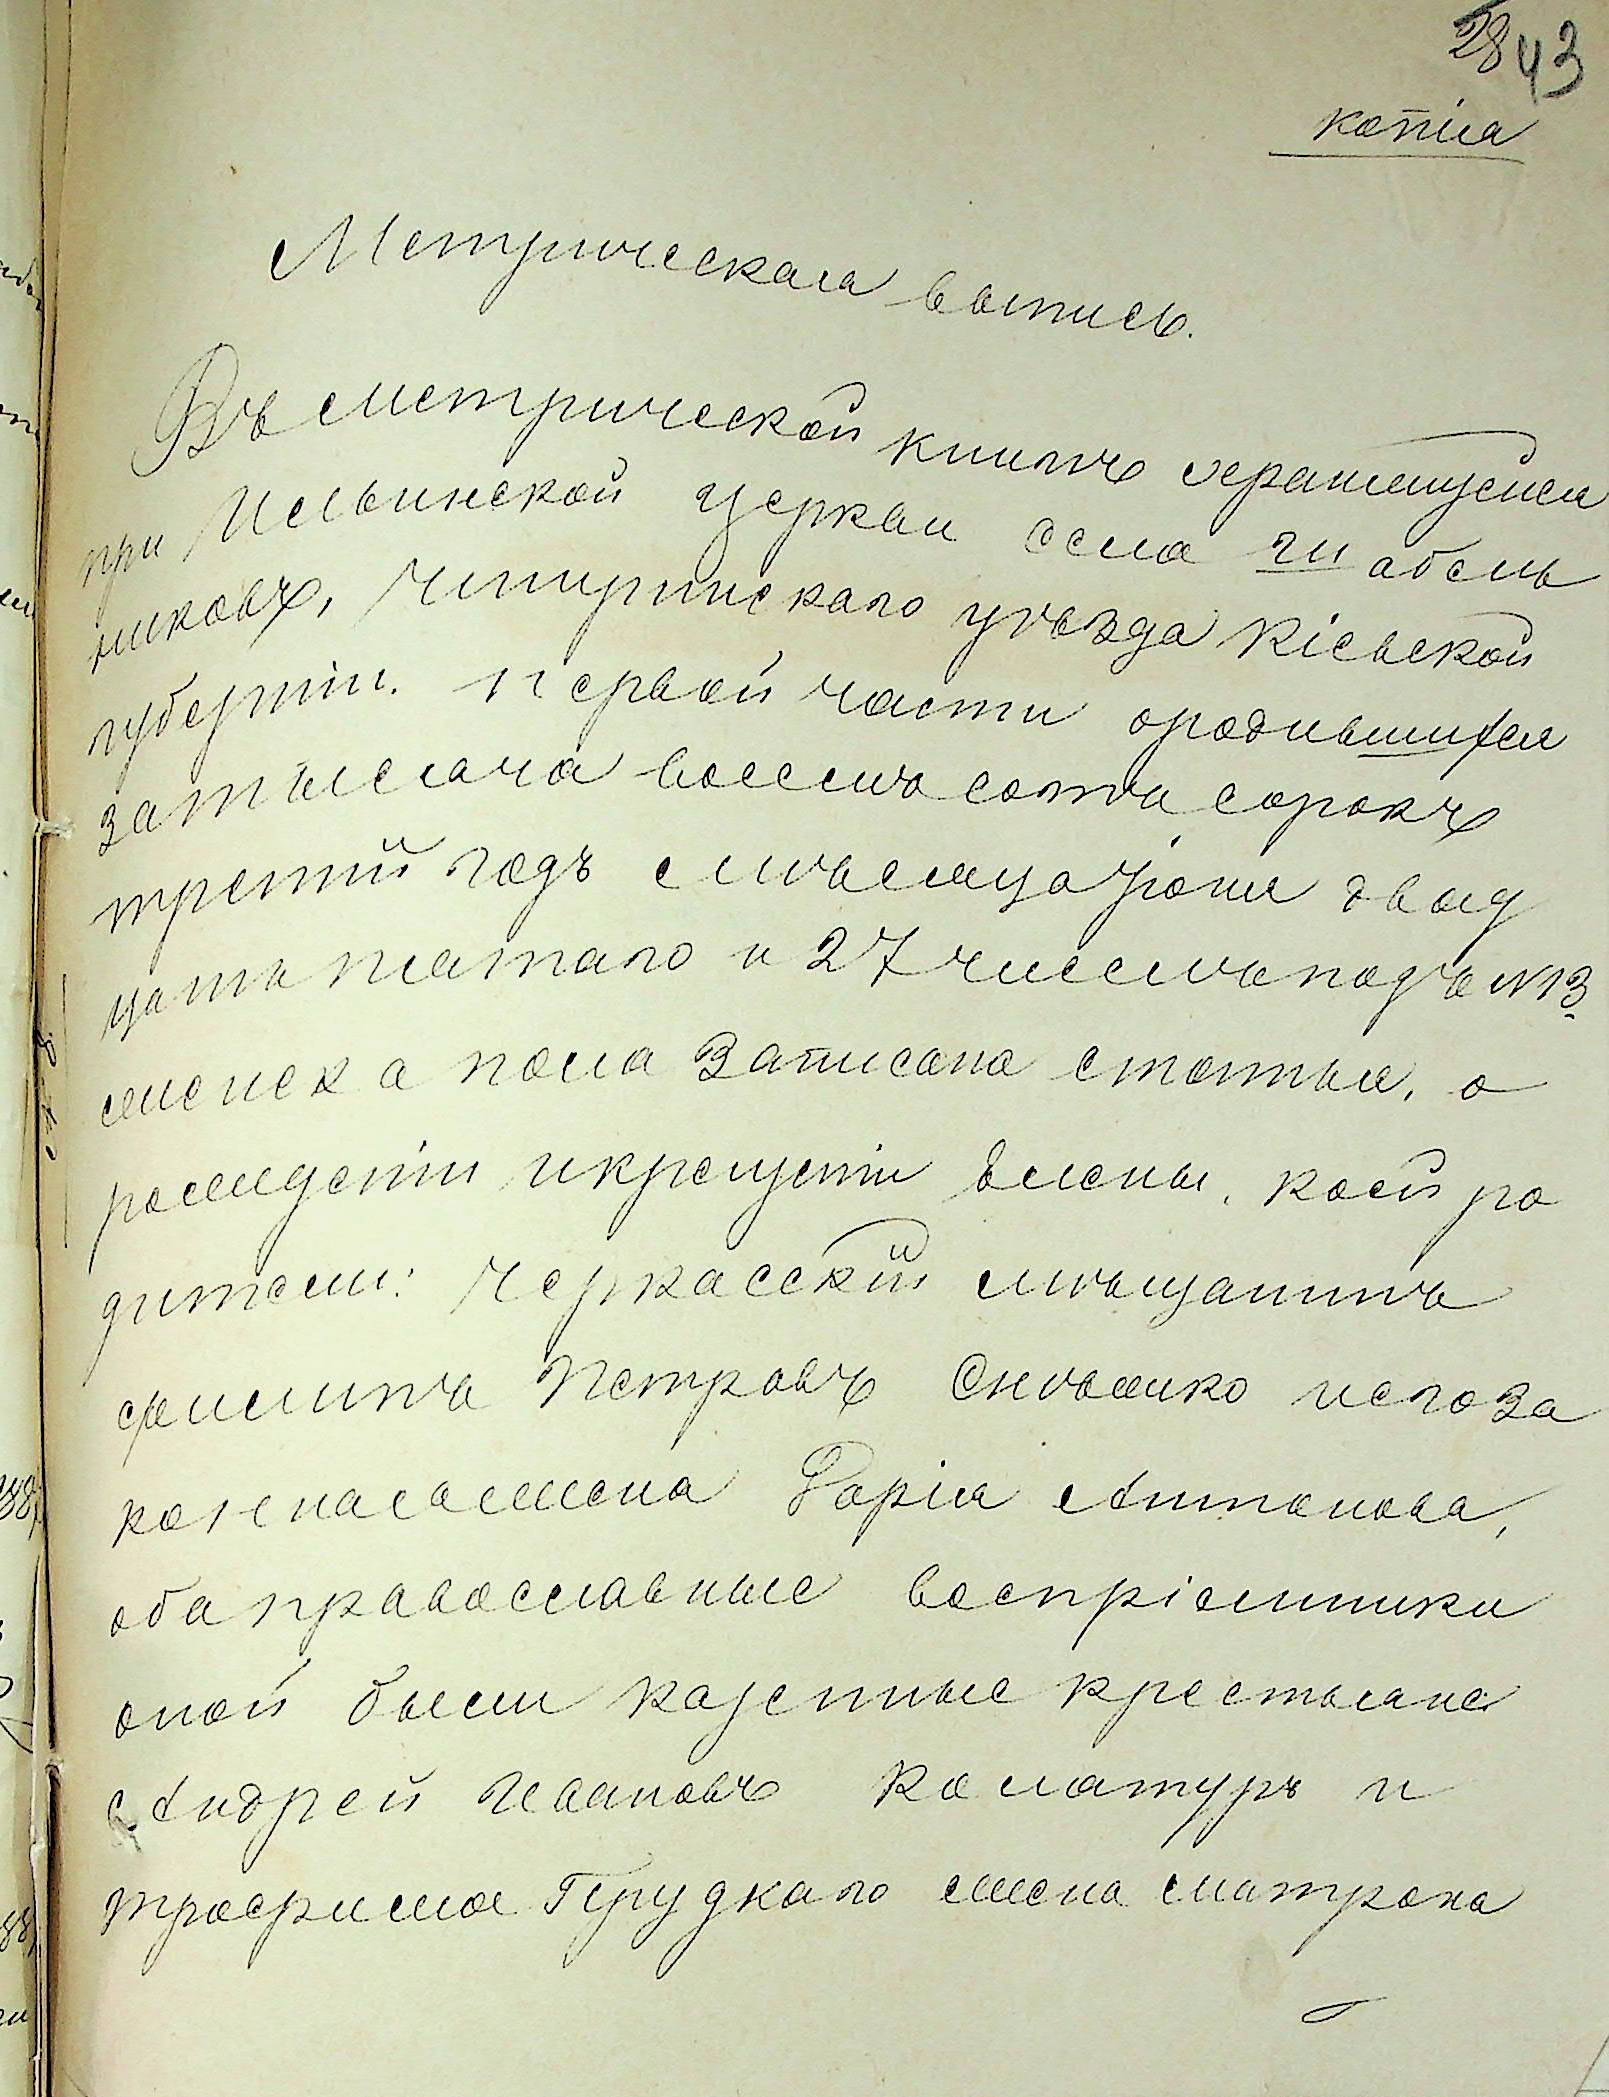 28 43
копія
Метрическая выпись.
Въ метрической книгѣ хранящуйся
при Ильинской церкви села Шабель
никовъ, Чигиринскаго уѣзда Кіевской
губерніи. Первой части ородившихся
за тысяча восемь сотъ сорокъ
третій годъ мѣсяца Іюня двад
цать пятаго и 27 числъ подъ №13
женска пола записана статья, о
рожденіи икрещеніи Елены, коей ро
дители: Черкасскій мѣщанинъ
Филипъ Петровъ Снѣжко иего за
конная жена Дарія Антонова,
оба православные воспріемники
оной были казенные крестьяне
Андрей Ивановъ Коматуръ и
трофима Прудкаго жена матрона